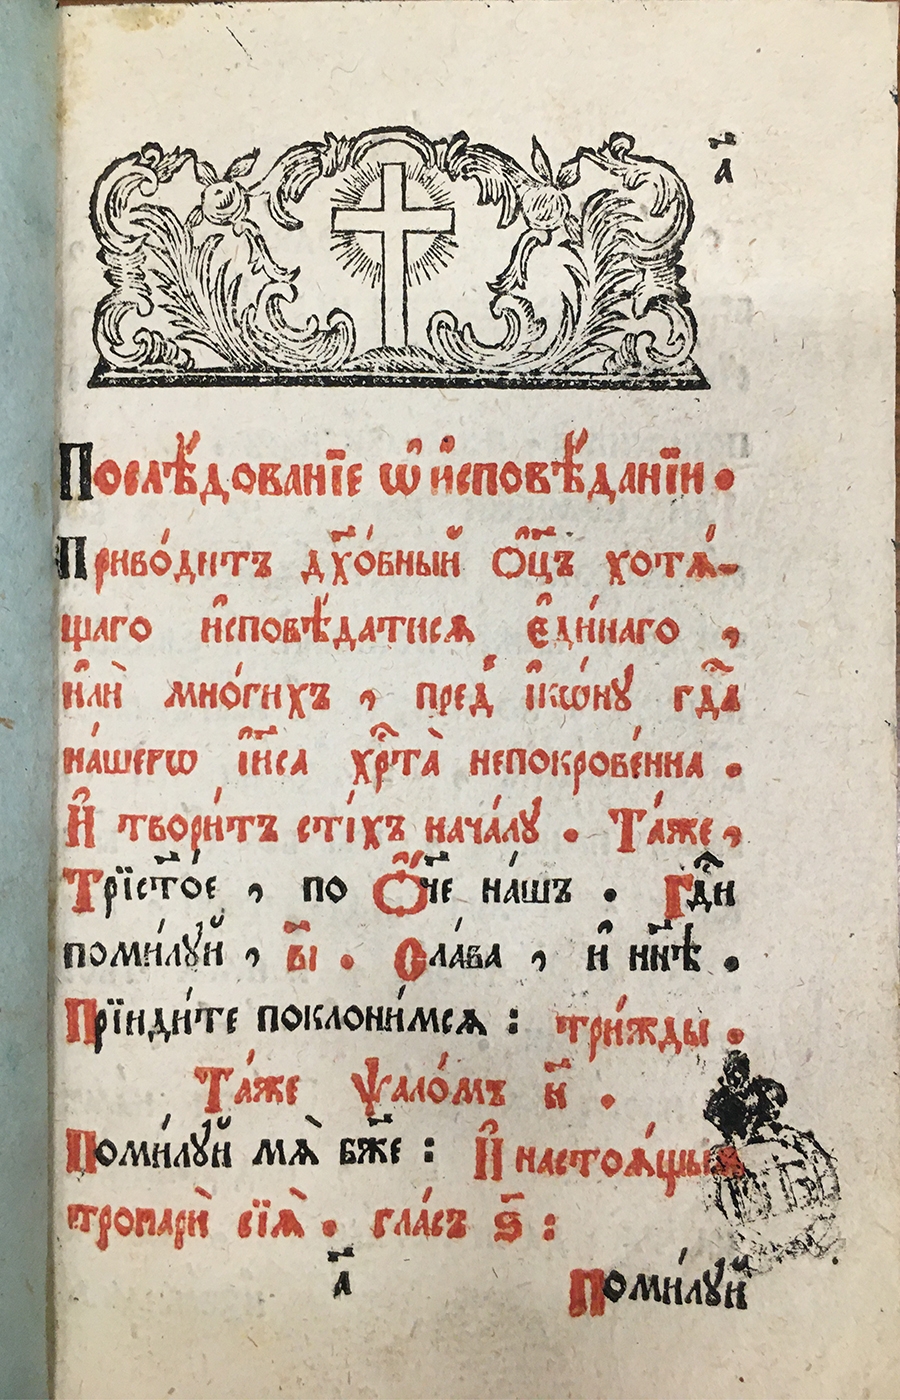 а҃
Послѣ́дованїе ѡ҆ и҆сповѣ́данїи .
Приво́дитъ дх҃о́вный ѻ҆ц҃ъ хотѧ́-
щаго и҆сповѣ́датисѧ є҆ди́наго ,
и҆лѝ мно́гихъ , пред̾ і҆кѡ́нꙋ гдⷭ҇а
на́шегѡ і҆и҃са хрⷭ҇та̀ непокрове́нна .
И҆ твори́тъ сті́хъ нача́лꙋ . Та́же ,
Трїст҃о́е , по Ѻ҆́ч҃е на́шъ . Гдⷭ҇и
поми́лꙋй , в҃і . Сла́ва , и҆ нн҃ѣ .
Прїиди́те поклони́мсѧ : три́жды .
Та́же ѱало́мъ н҃ .
Поми́лꙋй мѧ̀ бж҃е : И҆ настоѧ́щыѧ
тропарѝ сїѧ̀ . гла́съ ѕ҃ :
а҃ Поми́лꙋй